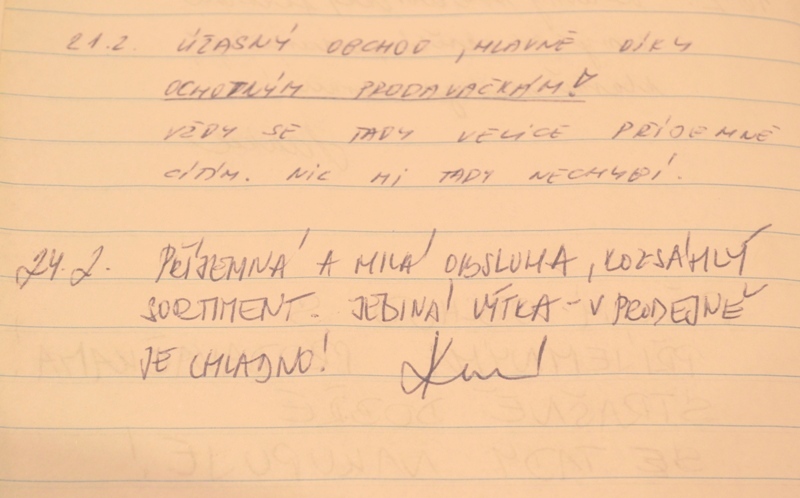 21.2. ÚŽASNÝ OBCHOD, HLAVNĚ DÍKY
OCHOTNÝM PRODAVAČKÁM!
VŽDY SE TADY VELICE PŘÍJEMNĚ
CÍTÍM. NIC MI TADY NECHYBÍ.
24.2. PŘÍJEMNÁ A MILÁ OBSLUHA, ROZSÁHLÝ
SORTIMENT. JEDINÁ VÝTKA - V PRODEJNĚ
JE CHLADNO!